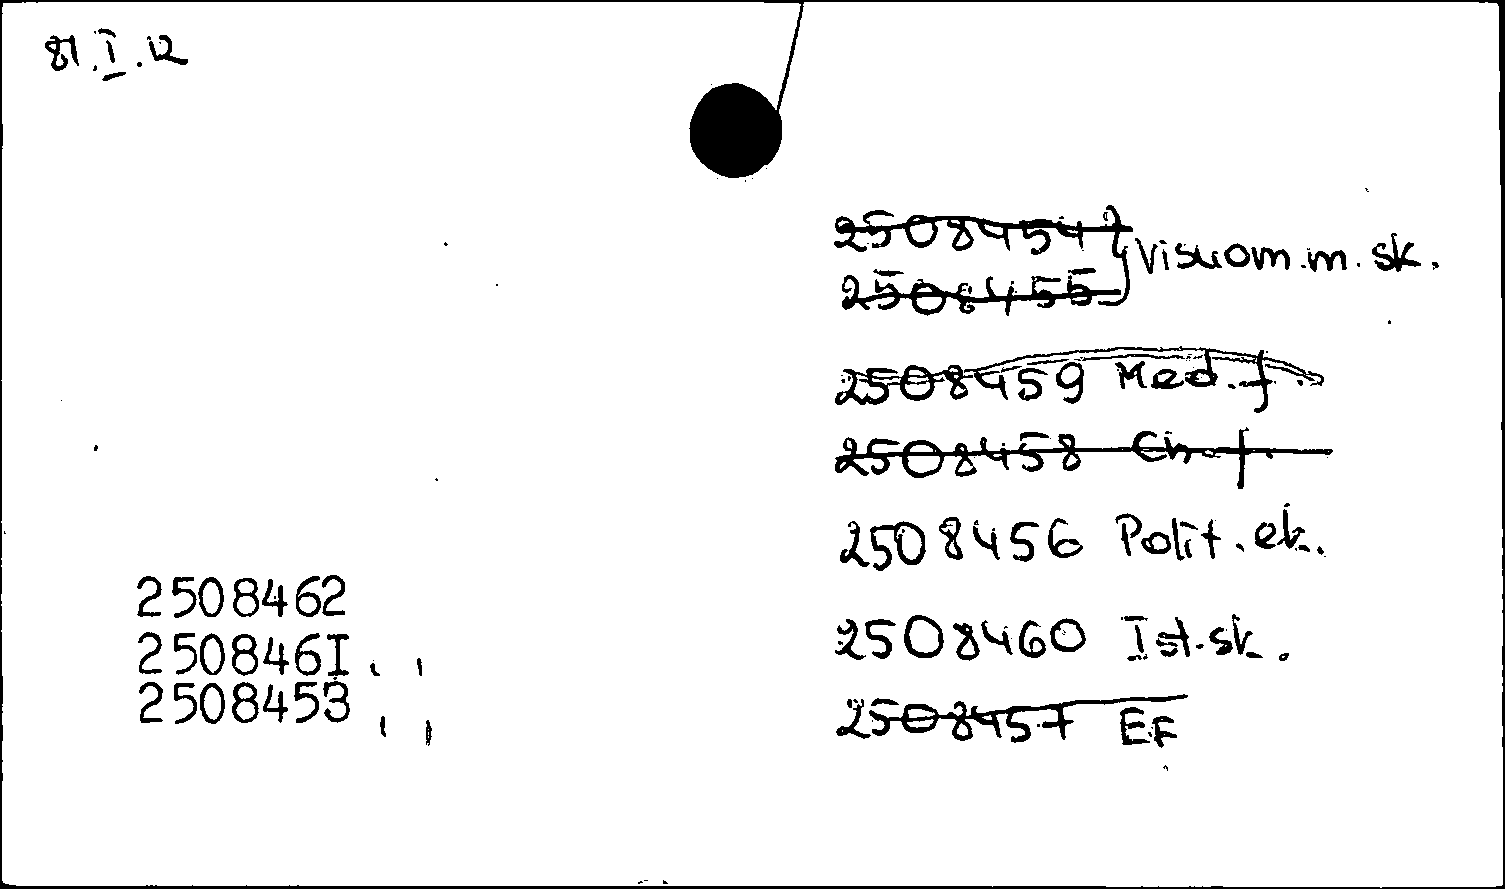 81.I.12
2508454
2508455 } Visuom.m.sk.
2508459 Med.f.
2508458 Ch.f.
2508456 Polit.ek.
2508460 Ist.sk.
2508457 EF
2508462
250846I
2508453